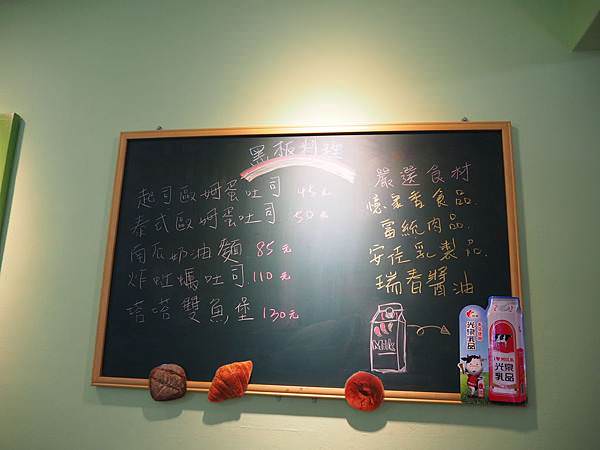 黑板料理
起司歐姆蛋吐司 45元
泰式歐姆蛋吐司 50元
南瓜奶油麵 85元
炸蝦蝦吐司 110元
塔塔雙魚堡 130元
嚴選食材
憶家香食品
富統肉品
安佳乳製品
瑞春醬油
Milk
光泉
乳品
光泉
乳品